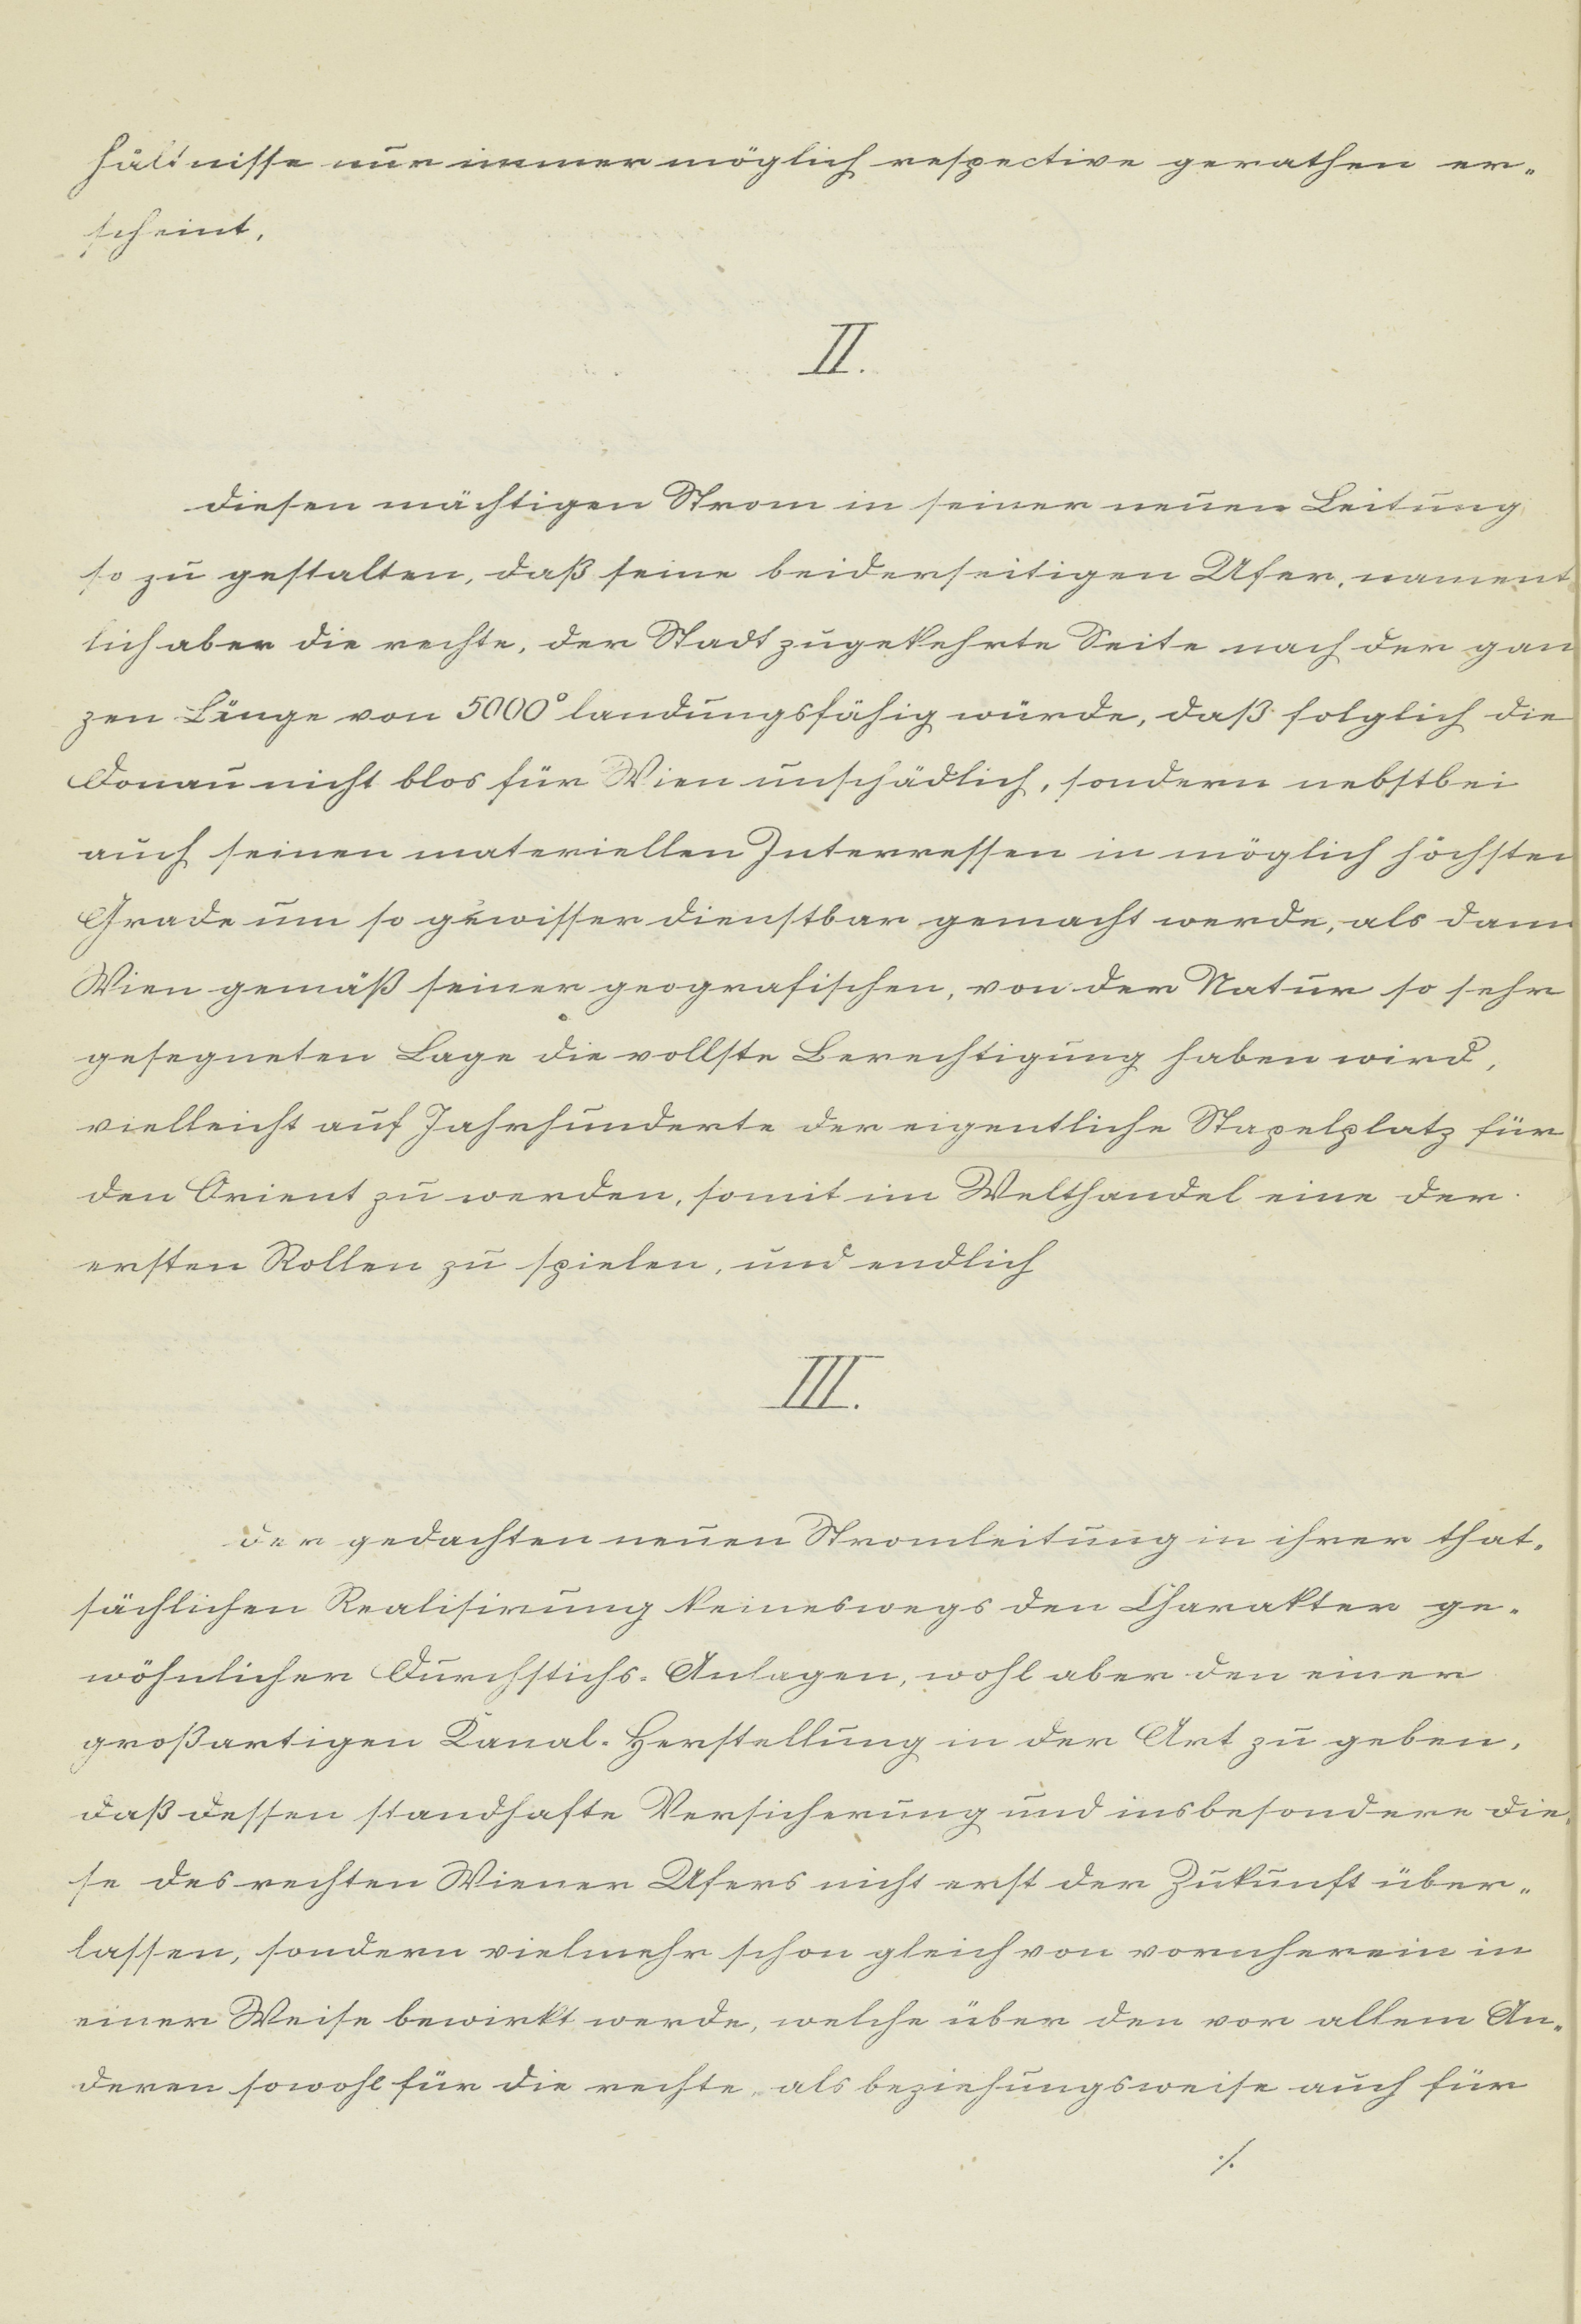 hältnisse nur immer möglich respective gerathen er-
scheint,
II.
diesen mächtigen Strom in seiner neuen Leitung
so zu gestalten, daß seine beiderseitigen Ufer, nament
lich aber die rechte, der Stadt zugekehrte Seite nach der gan
zen Länge von 5000° landungsfähig würde, daß folglich die
Donau nicht blos für Wien unschädlich, sondern nebstbei
auch seinen materiellen Interressen in möglich höchsten
Grade um so gewisser dienstbar gemacht werde, als dann
Wien gemäß seiner geografischen, von der Natur so sehr
gesegneten Lage die vollste Berechtigung haben wird,
vielleicht auf Jahrhunderte der eigentliche Stapelplatz für
den Orient zu werden, somit im Welthandel eine der
ersten Rollen zu spielen, und endlich
III.
der gedachten neuen Stromleitung in ihrer that-
sächlichen Realisirung keineswegs den Charakter ge-
wöhnlicher Durchstichs-Anlagen, wohl aber den einer
großartigen Kanal-Herstellung in der Art zu geben,
daß dessen standhafte Versicherung und insbesondere die-
se des rechten Wiener Ufers nicht erst der Zukunft über-
lassen, sondern vielmehr schon gleich von vornherein in
einer Weise bewirkt werde, welche über den vor allem An-
deren sowohl für die rechte, als beziehungsweise auch für
./.